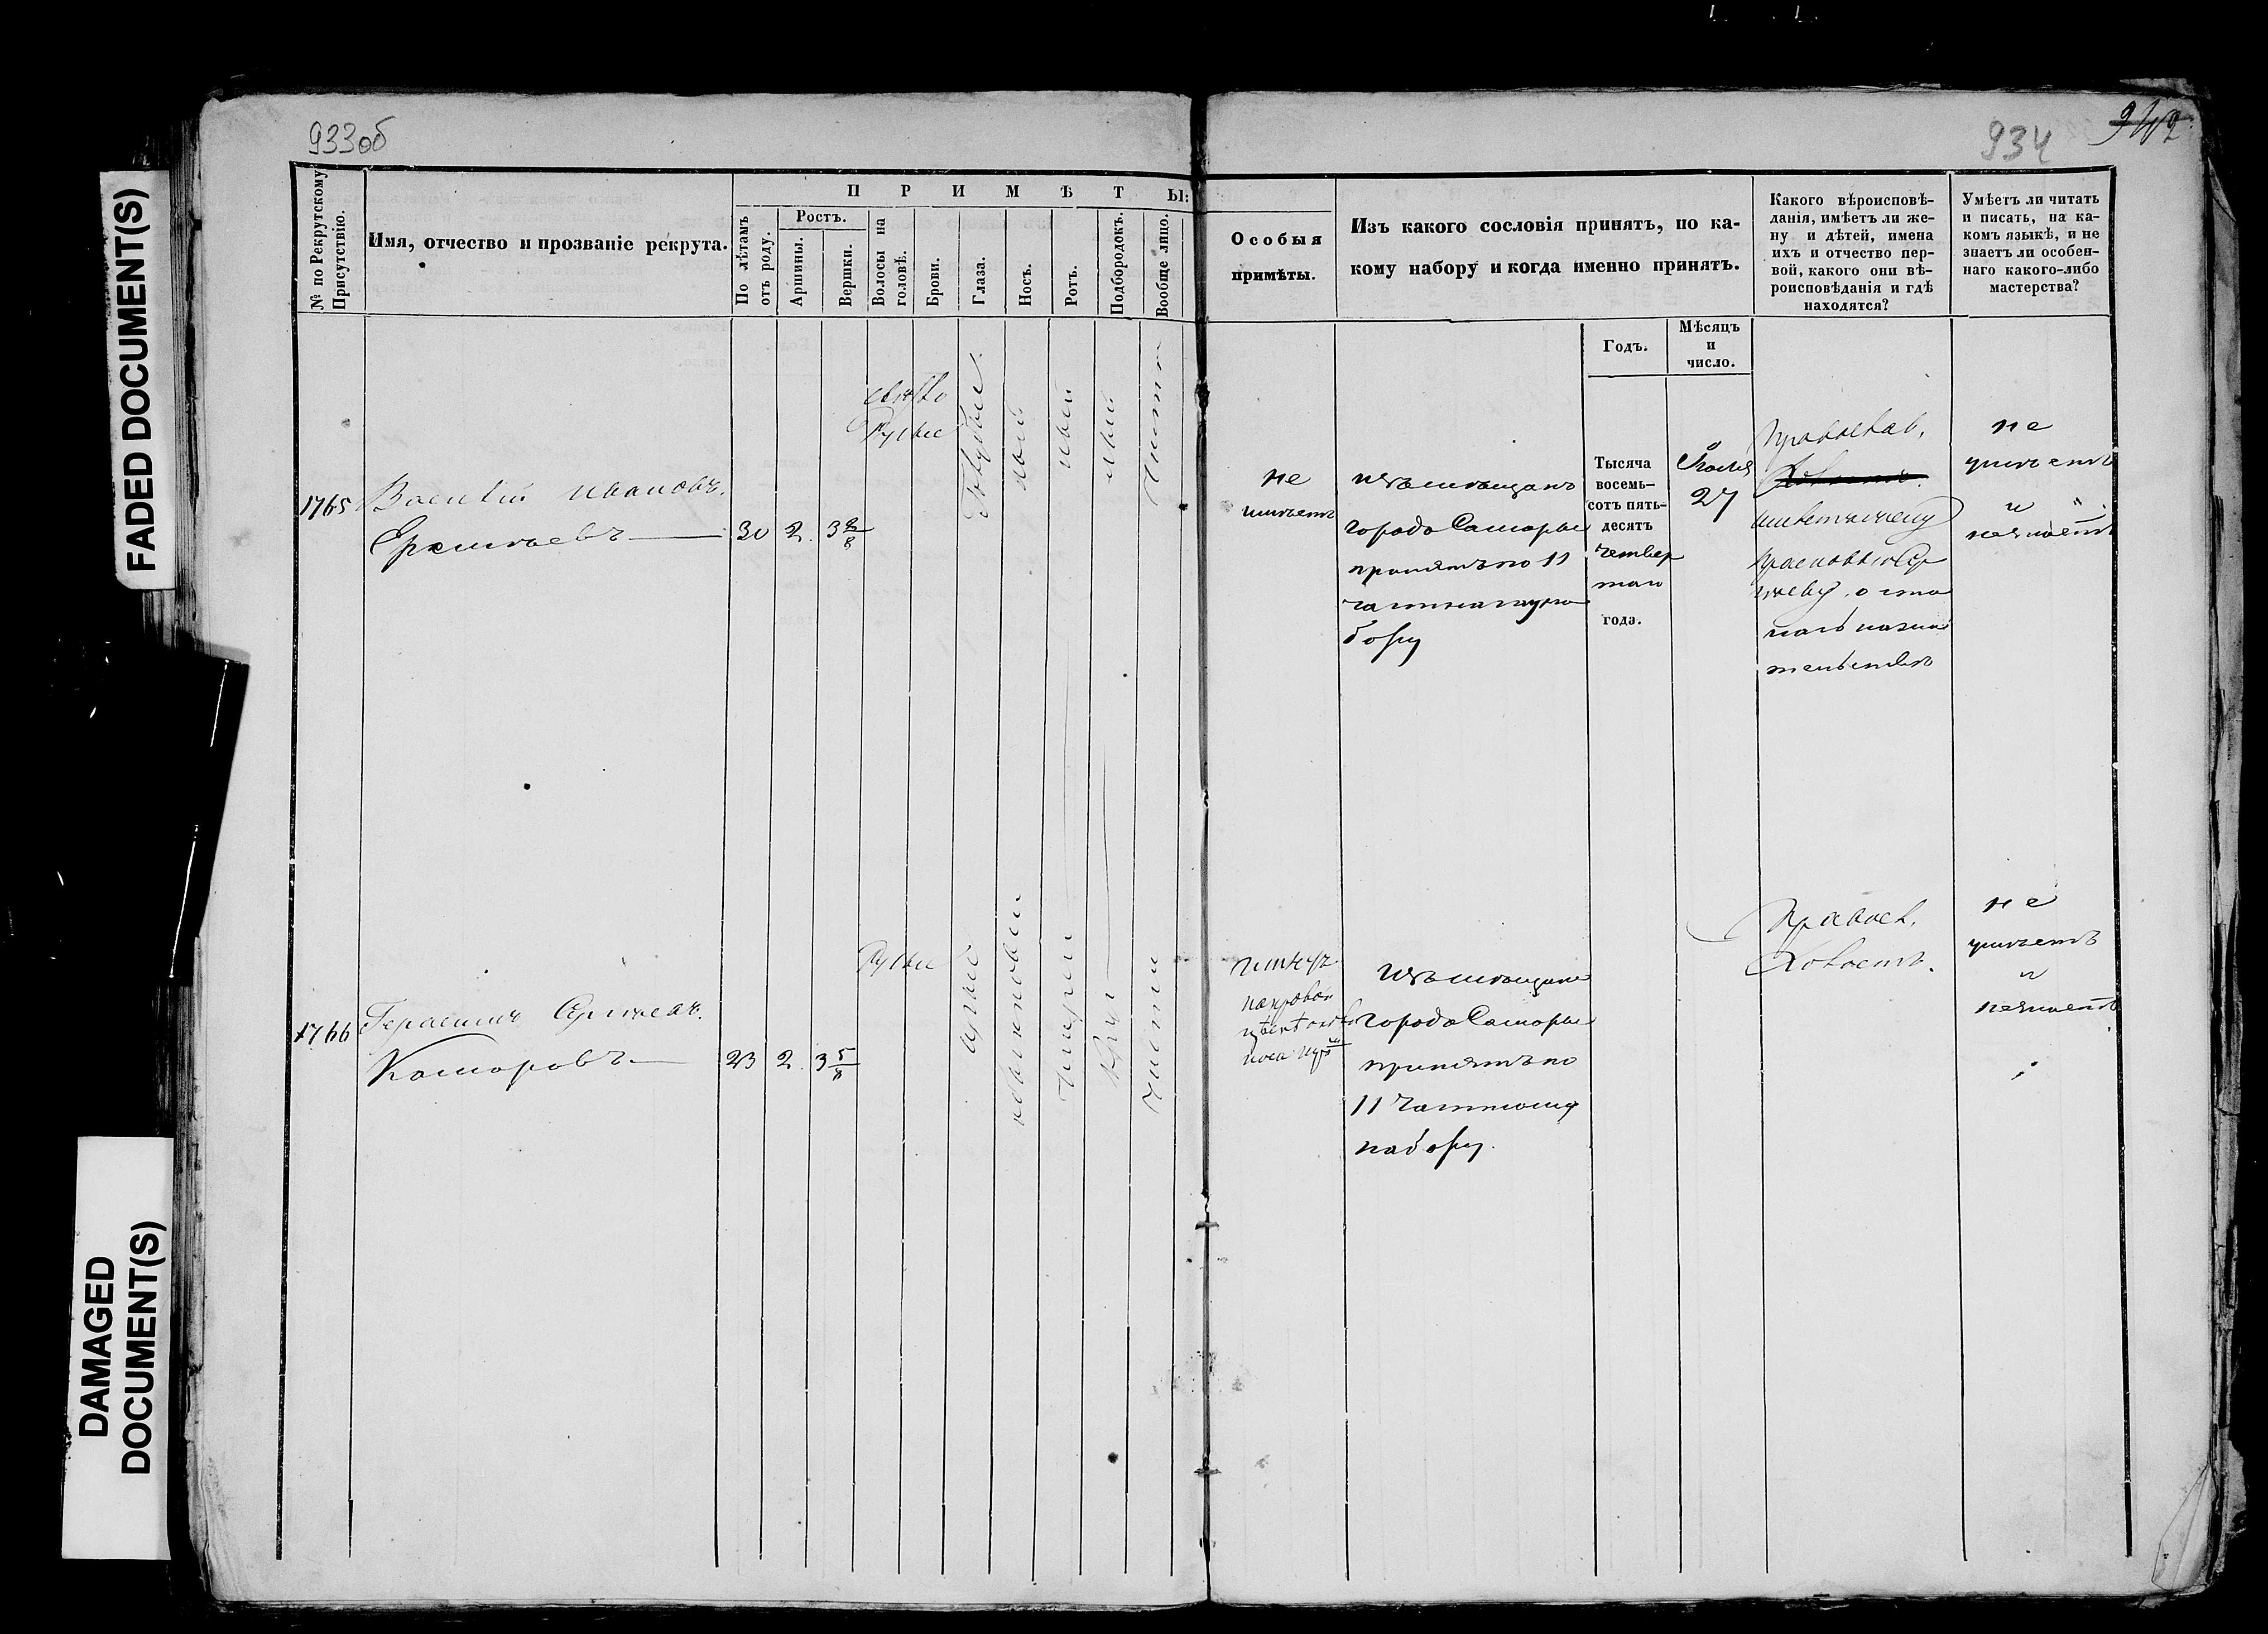 FADED DOCUMENT(S)
DAMAGED
DOCUMENT(S)
933об
934
№ по Рекрутскому
Присутствію.
Имя, отчество и прозваніе рекрута.
ПРИМѢТЫ:
По лѣтамъ
отъ роду.
Ростъ.
Аршины.
Вершки.
Волосы на
головѣ.
Брови.
Глаза.
Носъ.
Ротъ.
Подбородокъ.
Вообще лицо.
Особыя
примѣты.
Изъ какого сословія принятъ, по ка-
кому набору и когда именно принятъ.
Годъ.
Мѣсяцъ
и
число.
Какого вѣроисповѣ-
данія, имѣетъ ли же-
ну и дѣтей, имена
ихъ и отчество пер-
вой, какого они вѣ-
роисповѣданія и гдѣ
находятся?
Умѣетъ ли читать
и писать, на ка-
комъ языкѣ, и не
знаетъ ли особен-
наго какого-либо
мастерства?
1765
Василій Ивановъ
30
2
3
свѣтло
Русые
Голубые
Чисто
не
имѣетъ
изъ мѣщанъ
города Самары
принятъ по 11
бору
Тысяча
восемь-
сотъ пять-
десятъ
четвер
таго
года.
27
Православ.
не
умѣетъ
и
незнаетъ
1766
Герасимъ Сергѣевъ
Комаровъ
23
2
3 5/8
Русые
Чисто
изъ мѣщанъ
города Самары
принятъ по
11 частному
набору.
Правосл.
Холостъ.
не
умѣетъ
и
незнаетъ